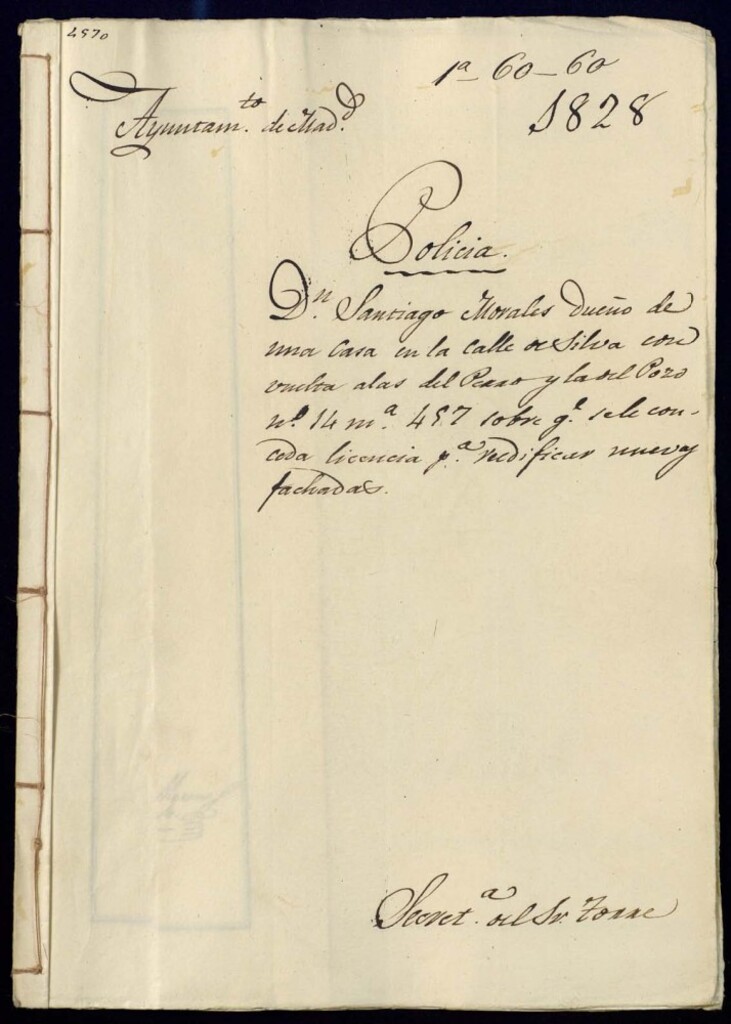 4570
1ª 60-60
Ayuntam.to de Mad.d
1828
Policia.
Dn. Santiago Morales Dueño de
una Casa en la Calle de Silva con
vuelta alas del Perro y la del Pozo
nº 14 m.ª 457 sobre q.e sele con-
ceda licencia p.ª redificar nuevas
fachadas.
Secret.ª del Sr. Torre